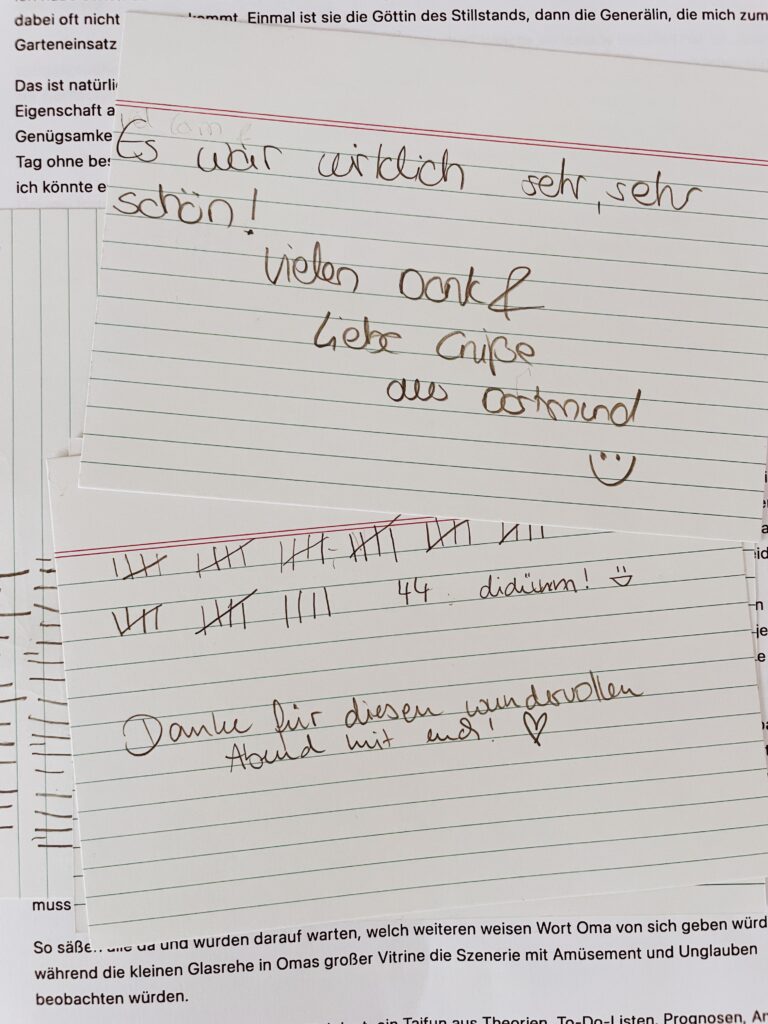 dabei oft nicht kommt. Einmal ist sie die Göttin des Stillstands, dann die Generälin, die mich zum
Garteneinsatz
Das ist natürli
Eigenschaft a
Genügsamke
Tag ohne bes
ich könnte e
Es wär wirklich sehr, sehr
schön!
Vielen Dank &
Liebe Grüße
aus Dortmund
44 didümm!
Danke für diesen wundervollen
Abend mit euch! ♡
muss
So säßen alle da und würden darauf warten, welch weiteren weisen Wort Oma von sich geben würd
während die kleinen Glasrehe in Omas großer Vitrine die Szenerie mit Amüsement und Unglauben
beobachten würden.
ein Taifun aus Theorien, To-Do-Listen, Prognosen, An